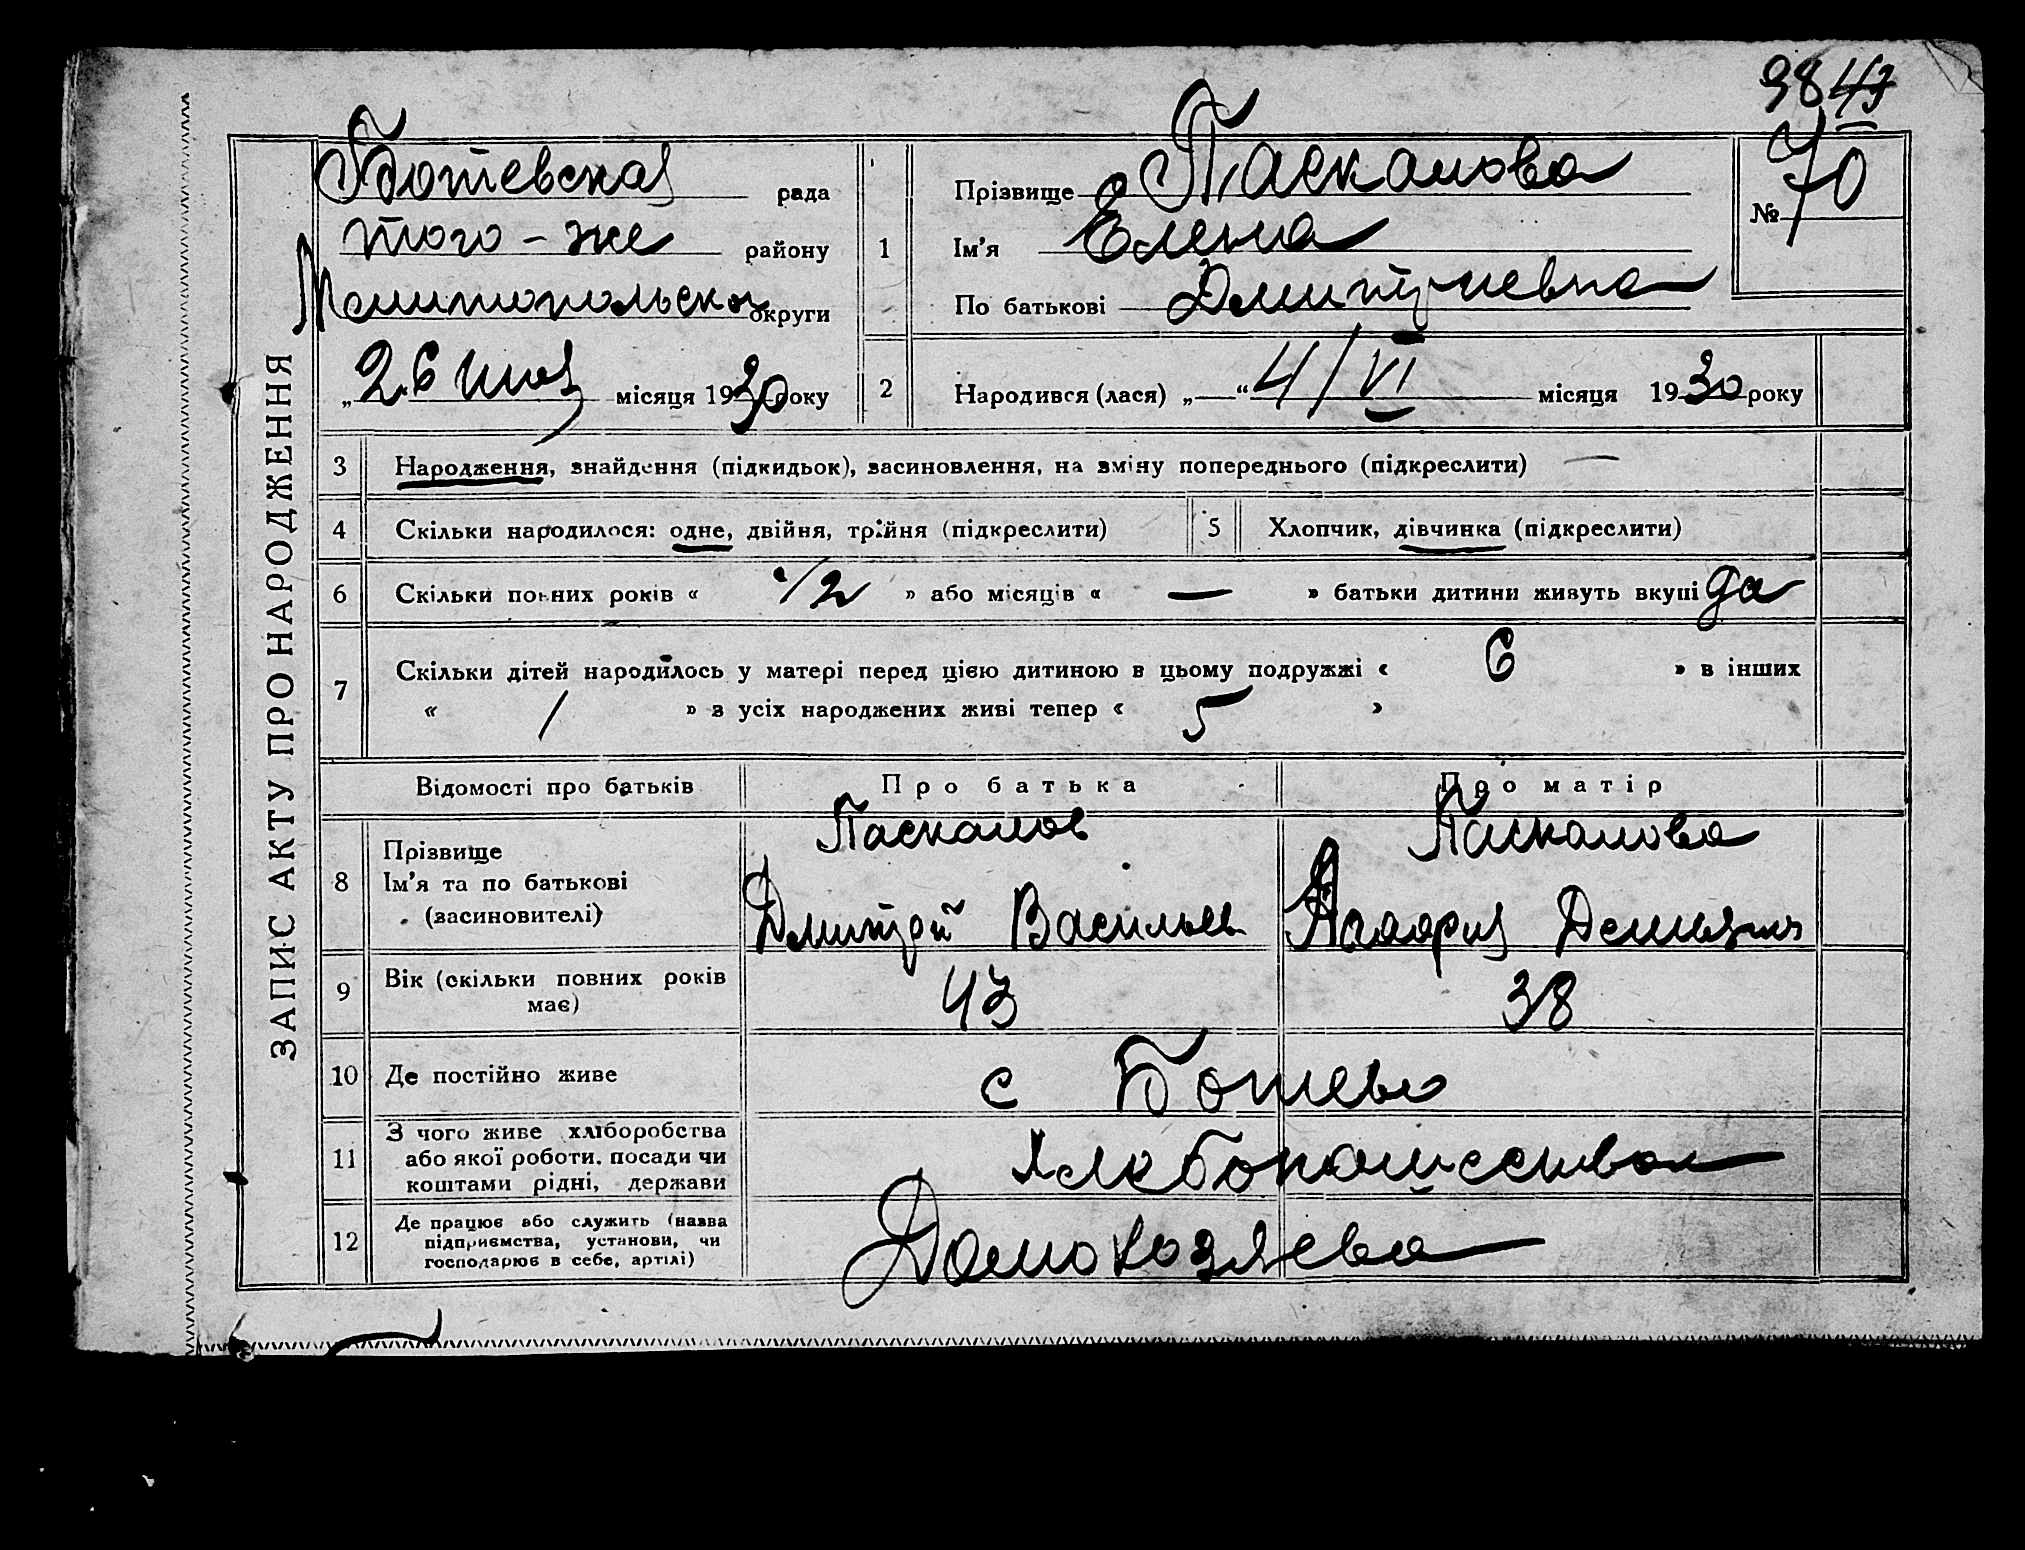 98 43
ЗАПИС АКТУ ПРО НАРОДЖЕННЯ
Ботевская рада
того-же району
Мелитопольской округи
„26 июля місяця 1930 року
1
Прізвище Паскалова
Ім'я Елена
По батькові Дмитриевна
№ 70
2
Народився (лася) „ “ 4/VI місяця 1930 року
3 Народження, знайдення (підкидьок), засиновлення, на зміну попереднього (підкреслити) —
4 Скільки народилося: одне, двійня, трійня (підкреслити)
5 Хлопчик, дівчинка (підкреслити)
6 Скільки повних років « » або місяців « — » батьки дитини живуть вкупі да
7 Скільки дітей народилось у матері перед цією дитиною в цьому подружжі « 6 » в інших
« / » з усіх народжених живі тепер « 5 »
Відомості про батьків Про батька Про матір
8 Прізвище
Ім'я та по батькові
(засиновителі)
Паскалов
Дмитрий Василье
Паскалова
Демьян
9 Вік (скільки повних років
має)
43 38
10 Де постійно живе с Ботево
11 З чого живе хліборобства
або якої роботи, посади чи
коштами рідні, держави
Хлебопашеством
12 Де працює або служить (назва
підприємства, установи, чи
господарює в себе, артілі)
Домохозяева